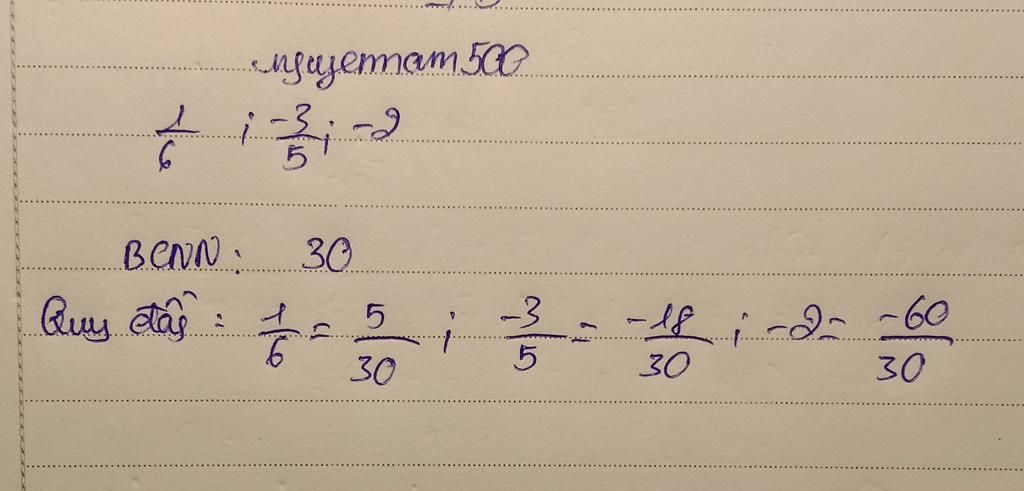 nguyentam500
1/6 ; -3/5 ; -2
BCNN : 30
Quy đầy : 1/6 = 5/30 ; -3/5 = -18/30 ; -2 = -60/30